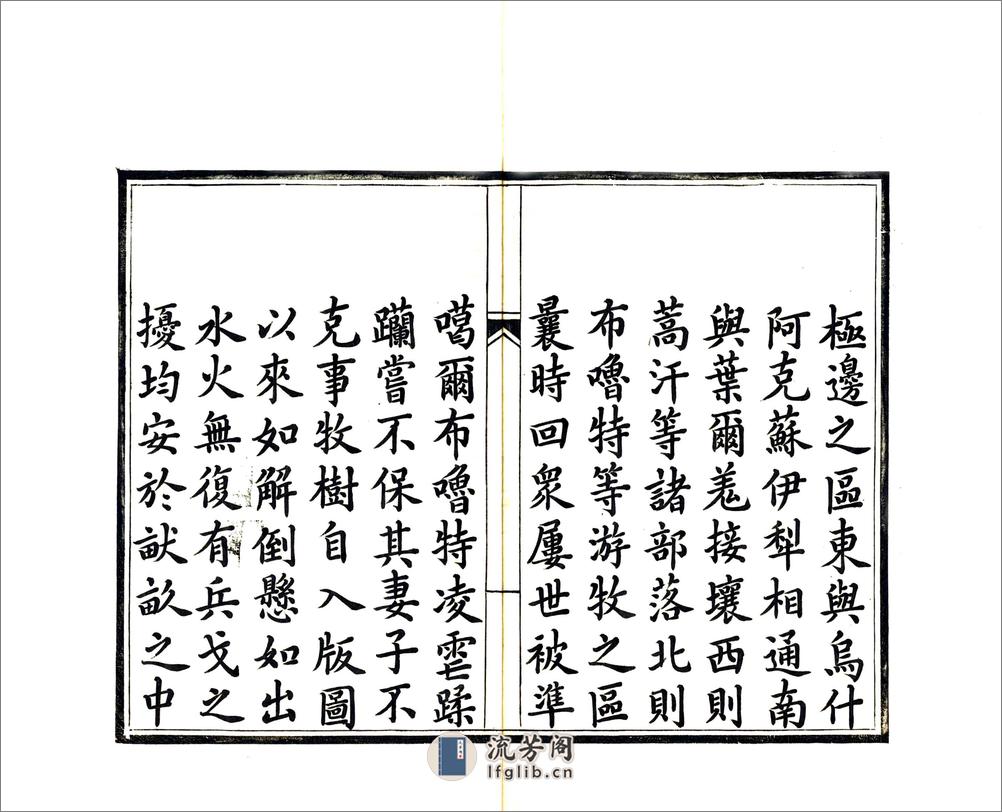 極邊之區東與烏什
阿克蘇伊犁相通南
與葉爾羗接壤西則
蒿汗等諸部落北則
布嚕特等游牧之區
曩時回衆屢世被準
噶爾布嚕特凌雲蹂
躪嘗不保其妻子不
克事牧樹自入版圖
以來如解倒懸如出
水火無復有兵戈之
擾均安於畎畝之中
流芳阁
lfglib.cn